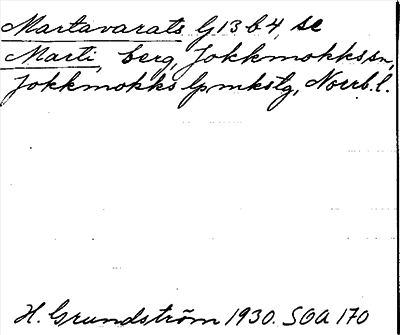 Martavarats G13b4, se
Marti, berg, Jokkmokks sn,
Jokkmokks lpmkstg, Norrb. l.
H. Grundström 1930. SOA 170